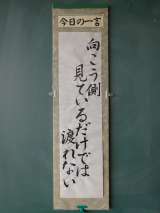 今日の一言
向こう側
見ているだけでは
渡れない